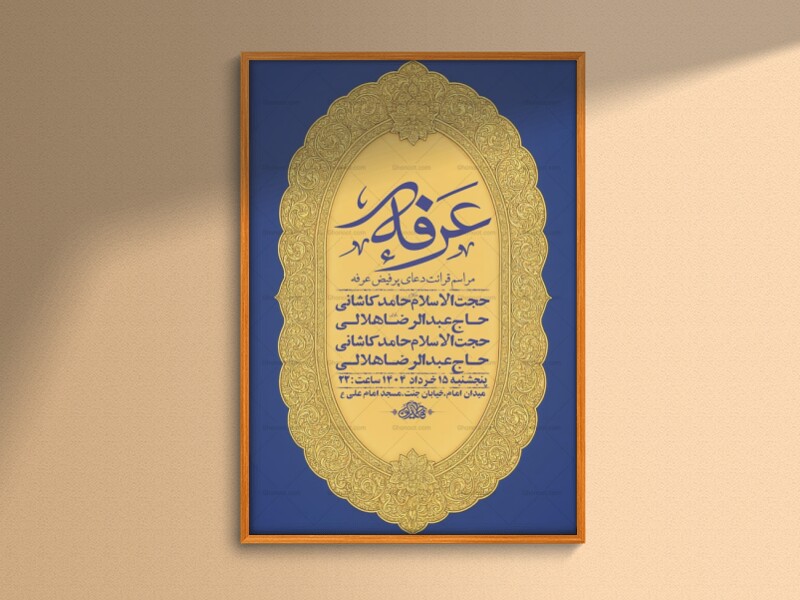 عرفه
مراسم قرائت دعای پرفیض عرفه
حجت‌الاسلام حامد کاشانی
حاج عبدالرضا هلالی
حجت‌الاسلام حامد کاشانی
حاج عبدالرضا هلالی
پنجشنبه ۱۵ خرداد ۱۴۰۴ ساعت: ۲۲
میدان امام، خیابان جنت، مسجد امام علی ع